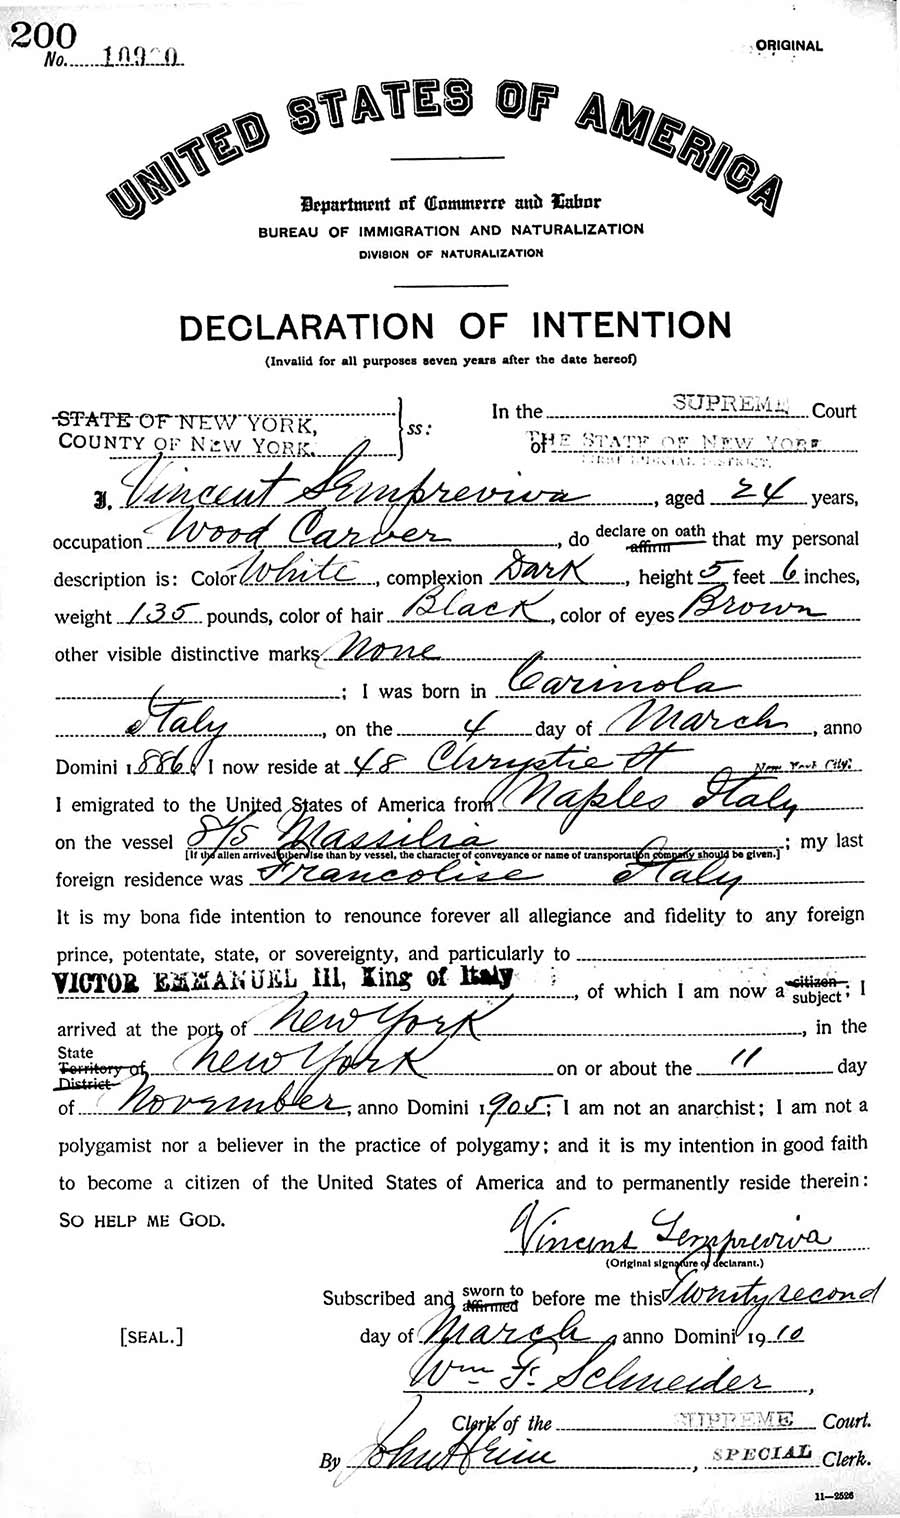 200
No. 10920
ORIGINAL
UNITED STATES OF AMERICA
Department of Commerce and Labor
BUREAU OF IMMIGRATION AND NATURALIZATION
DIVISION OF NATURALIZATION
DECLARATION OF INTENTION
(Invalid for all purposes seven years after the date hereof)
STATE OF NEW YORK,
COUNTY OF NEW YORK.
ss:
In the SUPREME Court
of THE STATE OF NEW YORK
FIRST JUDICIAL DISTRICT.
I, Vincent Sempreviva, aged 24 years,
occupation Wood Carver, do declare on oath affirm that my personal
description is: Color White, complexion Dark, height 5 feet 6 inches,
weight 135 pounds, color of hair Black, color of eyes Brown
other visible distinctive marks None
; I was born in Carinola
Italy, on the 4 day of March, anno
Domini 1886; I now reside at 48 Chrystie St New York City.
I emigrated to the United States of America from Naples Italy
on the vessel S/S Massilia; my last
[If the alien arrived otherwise than by vessel, the character of conveyance or name of transportation company should be given.]
foreign residence was Francolise Italy
It is my bona fide intention to renounce forever all allegiance and fidelity to any foreign
prince, potentate, state, or sovereignty, and particularly to
VICTOR EMMANUEL III, King of Italy, of which I am now a citizen subject; I
arrived at the port of New York, in the
State Territory of District New York on or about the 11 day
of November, anno Domini 1905; I am not an anarchist; I am not a
polygamist nor a believer in the practice of polygamy; and it is my intention in good faith
to become a citizen of the United States of America and to permanently reside therein:
SO HELP ME GOD.
Vincent Sempreviva
(Original signature of declarant.)
Subscribed and sworn to affirmed before me this Twenty second
[SEAL.]
day of March, anno Domini 1910
Wm F. Schneider,
Clerk of the SUPREME Court.
By John Heim, SPECIAL Clerk.
11—2526